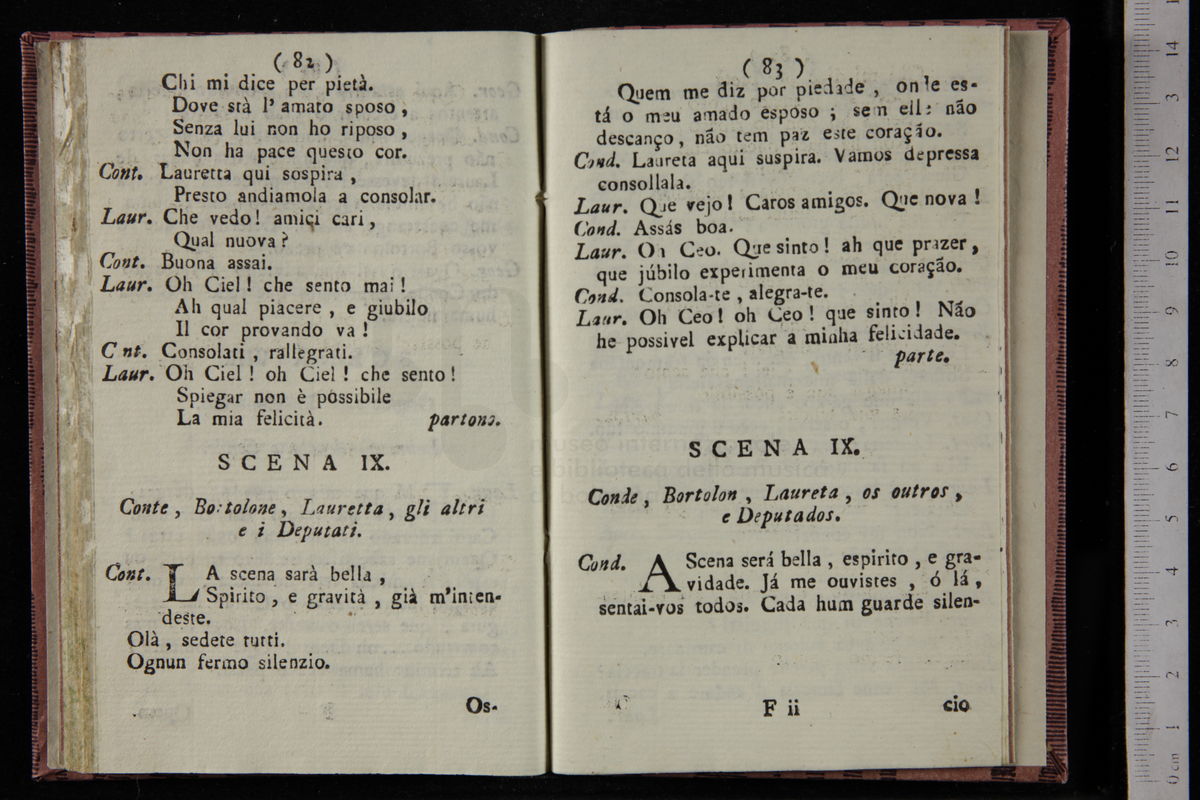 ( 82 )
Chi mi dice per pietà.
Dove stà l' amato sposo ,
Senza lui non ho riposo ,
Non ha pace questo cor.
Cont. Lauretta qui sospira ,
Presto andiamola a consolar.
Laur. Che vedo ! amici cari ,
Qual nuova ?
Cont. Buona assai.
Laur. Oh Ciel ! che sento mai !
Ah qual piacere , e giubilo
Il cor provando va !
C nt. Consolati , rallegrati.
Laur. Oh Ciel ! oh Ciel ! che sento !
Spiegar non è possibile
La mia felicità. partono.
SCENA IX.
Conte , Bortolone , Lauretta , gli altri
e i Deputati.
Cont. LA scena sarà bella ,
Spirito , e gravità , già m'inten-
deste.
Olà , sedete tutti.
Ognun fermo silenzio.
Os-
( 83 )
Quem me diz por piedade , onde es-
tá o meu amado esposo ; sem elle não
descanço , não tem paz este coração.
Cond. Laureta aqui suspira. Vamos depressa
consollala.
Laur. Que vejo ! Caros amigos. Que nova !
Cond. Assás boa.
Laur. Oh Ceo. Que sinto ! ah que prazer ,
que júbilo experimenta o meu coração.
Cond. Consola-te , alegra-te.
Laur. Oh Ceo ! oh Ceo ! que sinto ! Não
he possivel explicar a minha felicidade.
parte.
SCENA IX.
Conde , Bortolon , Laureta , os outros ,
e Deputados.
Cond. A Scena será bella , espirito , e gra-
vidade. Já me ouvistes , ó lá ,
sentai-vos todos. Cada hum guarde silen-
F ii
cio
museo internazionale
e biblioteca della musica
14
13
12
11
10
9
8
7
6
5
4
3
2
1
0 cm